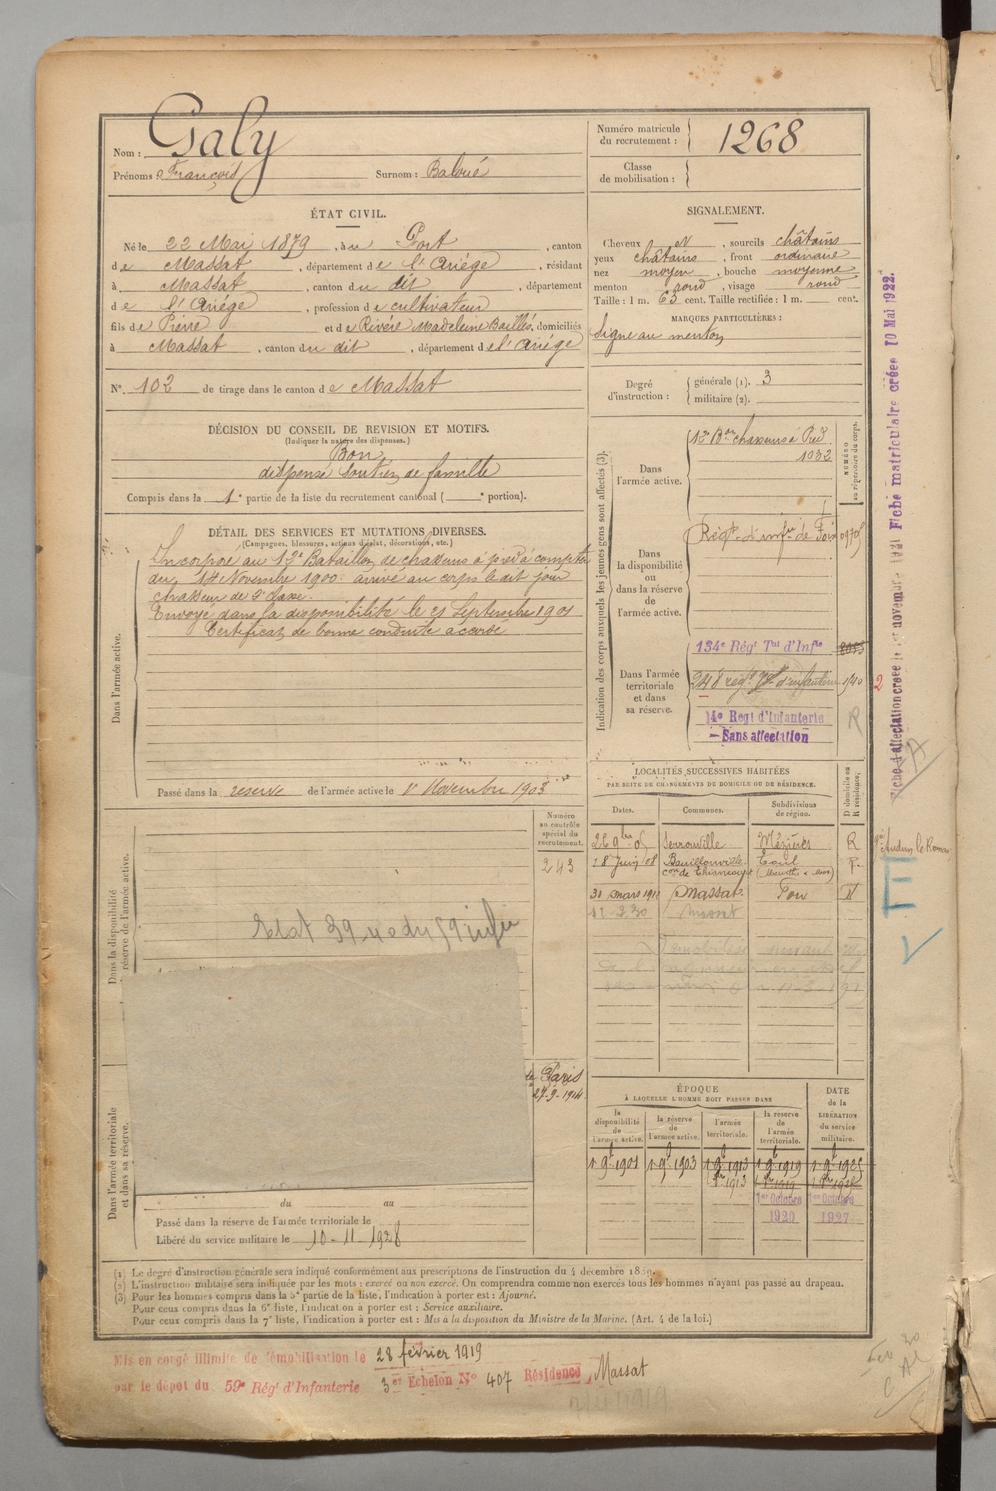 Nom : Galy
Prénoms : François Surnom : Baloué
Numéro matricule du recrutement : 1268
Classe de mobilisation :
ÉTAT CIVIL.
Né le 22 Mai 1879, à u Port, canton
de Massat, département de l'Ariége, résidant
à Massat, canton du dit, département
de l'Ariége, profession de cultivateur
fils de Pierre et de Rivére Madeleine, domiciliés
à Massat, canton du dit, département de l'Ariége
N°. 102 de tirage dans le canton de Massat
SIGNALEMENT.
Cheveux N, sourcils châtains
yeux châtains, front ordinaire
nez moyen, bouche moyenne
menton rond, visage rond
Taille : 1 m. 63 cent. Taille rectifiée : 1 m. cent.
MARQUES PARTICULIÈRES :
Signe au menton
Degré d'instruction : générale (1). 3
militaire (2).
DÉCISION DU CONSEIL DE REVISION ET MOTIFS.
(Indiquer la nature des dispenses.)
Bon
dispensé soutien de famille
Compris dans la 1e partie de la liste du recrutement cantonal ( e portion).
DÉTAIL DES SERVICES ET MUTATIONS DIVERSES.
(Campagnes, blessures, actions d'éclat, décorations, etc.)
Dans l'armée active.
Incorporé au Bataillon de chasseurs à pied à compter
du 14 Novembre 1900. arrivé au corps le dit jour
chasseur de 2e classe.
Envoyé dans la disponibilité le 21 Septembre 1901
Certificat de bonne conduite accordé
Passé dans la réserve de l'armée active le 1er Novembre 1903
Indication des corps auxquels les jeunes gens sont affectés (3).
NUMÉRO au répertoire du corps.
Dans l'armée active.
Bon chasseurs à Pied
1032
Dans la disponibilité ou dans la réserve de l'armée active.
Régt d'infie de Foix
Dans l'armée territoriale et dans sa réserve.
134e Régt Tal d'Infie
régt d'infanterie 1/40
Regt d'Infanterie
Sans affectation
R
LOCALITÉS SUCCESSIVES HABITÉES
PAR SUITE DE CHANGEMENTS DE DOMICILE OU DE RÉSIDENCE.
Dates. Communes. Subdivisions de région. D domicile ou R résidence.
26 9bre 05 Serrouville Mézières R
18 Juin 08 Bouillonville Toul
con de Thiaucourt (Meurthe & Mos)
31 mars 191 Massat Foix
Massat
Numéro au contrôle spécial du recrutement.
243
Dans la disponibilité et dans la réserve de l'armée active.
Etat 39
Paris
27-9-1914
Dans l'armée territoriale et dans sa réserve.
du au
Passé dans la réserve de l'armée territoriale le
Libéré du service militaire le 10-11-1928
ÉPOQUE
À LAQUELLE L'HOMME DOIT PASSER DANS
DATE de la LIBÉRATION du service militaire.
la disponibilité de l'armée active. la réserve de l'armée active. l'armée territoriale. la réserve de l'armée territoriale.
1 9b 1901 1 9b 1903 1 9b 1913 1 9b 1919 1 9b 1925
1er Octobre 1920 1er Octobre 1927
(1) Le degré d'instruction générale sera indiqué conformément aux prescriptions de l'instruction du 4 décembre 1889.
(2) L'instruction militaire sera indiquée par les mots : exercé ou non exercé. On comprendra comme non exercés tous les hommes n'ayant pas passé au drapeau.
(3) Pour les hommes compris dans la 5e partie de la liste, l'indication à porter est : Ajourné.
Pour ceux compris dans la 6e liste, l'indication à porter est : Service auxiliaire.
Pour ceux compris dans la 7e liste, l'indication à porter est : Mis à la disposition du Ministre de la Marine. (Art. 4 de la loi.)
Mis en congé illimité de démobilisation le 28 février 1919
par le dépôt du 59e Régt d'Infanterie 3er Echelon N° 407 Résidence Massat
Fiche d'affectation créée le 1er novembre 1921 Fiche matriculaire créée 10 Mai 1922.